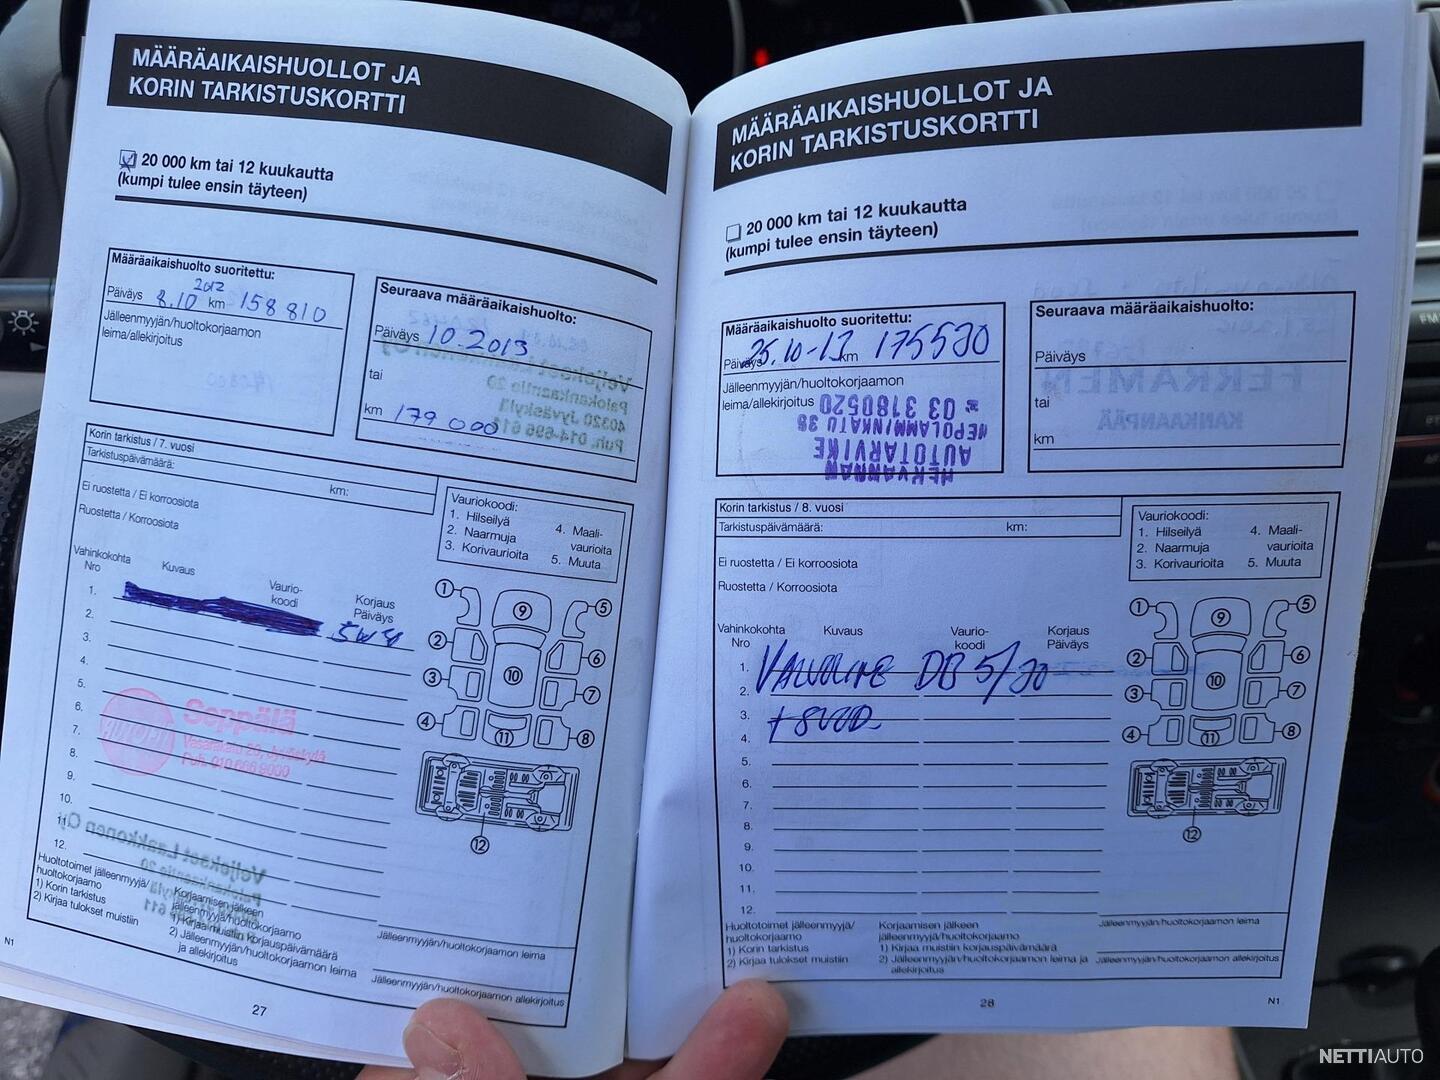 MÄÄRÄAIKAISHUOLLOT JA
KORIN TARKISTUSKORTTI
20 000 km tai 12 kuukautta
(kumpi tulee ensin täyteen)
Määräaikaishuolto suoritettu:
2012
Päiväys 8.10 km 158 810
Jälleenmyyjän/huoltokorjaamon
leima/allekirjoitus
Seuraava määräaikaishuolto:
Päiväys 10-2013
tai
km 179 000
Korin tarkistus / 7. vuosi
Tarkistuspäivämäärä:
km:
Ei ruostetta / Ei korroosiota
Ruostetta / Korroosiota
Vauriokoodi:
1. Hilseilyä
2. Naarmuja
3. Korivaurioita
4. Maali-
vaurioita
5. Muuta
Vahinkokohta
Nro
Kuvaus
Vaurio-
koodi
Korjaus
Päiväys
1.
2.
3.
4.
5.
6.
7.
8.
9.
10.
11.
12.
Seppälä
Vasarakatu 20, Jyväskylä
Puh. 010 666 9000
1
2
3
4
5
6
7
8
9
10
11
12
Huoltotoimet jälleenmyyjä/
huoltokorjaamo
1) Korin tarkistus
2) Kirjaa tulokset muistiin
Korjaamisen jälkeen
jälleenmyyjä/huoltokorjaamo
1) Kirjaa muistiin korjauspäivämäärä
2) Jälleenmyyjän/huoltokorjaamon leima
ja allekirjoitus
Jälleenmyyjän/huoltokorjaamon leima
Jälleenmyyjän/huoltokorjaamon allekirjoitus
N1
27
MÄÄRÄAIKAISHUOLLOT JA
KORIN TARKISTUSKORTTI
20 000 km tai 12 kuukautta
(kumpi tulee ensin täyteen)
Määräaikaishuolto suoritettu:
Päiväys 25.10-13 km 175530
Jälleenmyyjän/huoltokorjaamon
leima/allekirjoitus
AUTOTARVIKE
HEPOLAMMINKATU 36
03 3180520
Seuraava määräaikaishuolto:
Päiväys
tai
km
Korin tarkistus / 8. vuosi
Tarkistuspäivämäärä:
km:
Ei ruostetta / Ei korroosiota
Ruostetta / Korroosiota
Vauriokoodi:
1. Hilseilyä
2. Naarmuja
3. Korivaurioita
4. Maali-
vaurioita
5. Muuta
Vahinkokohta
Nro
Kuvaus
Vaurio-
koodi
Korjaus
Päiväys
1.
VALVOLINE DB 5/30
2.
3.
4.
5.
6.
7.
8.
9.
10.
11.
12.
1
2
3
4
5
6
7
8
9
10
11
12
Huoltotoimet jälleenmyyjä/
huoltokorjaamo
1) Korin tarkistus
2) Kirjaa tulokset muistiin
Korjaamisen jälkeen
jälleenmyyjä/huoltokorjaamo
1) Kirjaa muistiin korjauspäivämäärä
2) Jälleenmyyjän/huoltokorjaamon leima ja
allekirjoitus
Jälleenmyyjän/huoltokorjaamon leima
Jälleenmyyjän/huoltokorjaamon allekirjoitus
28
N1
NETTIAUTO